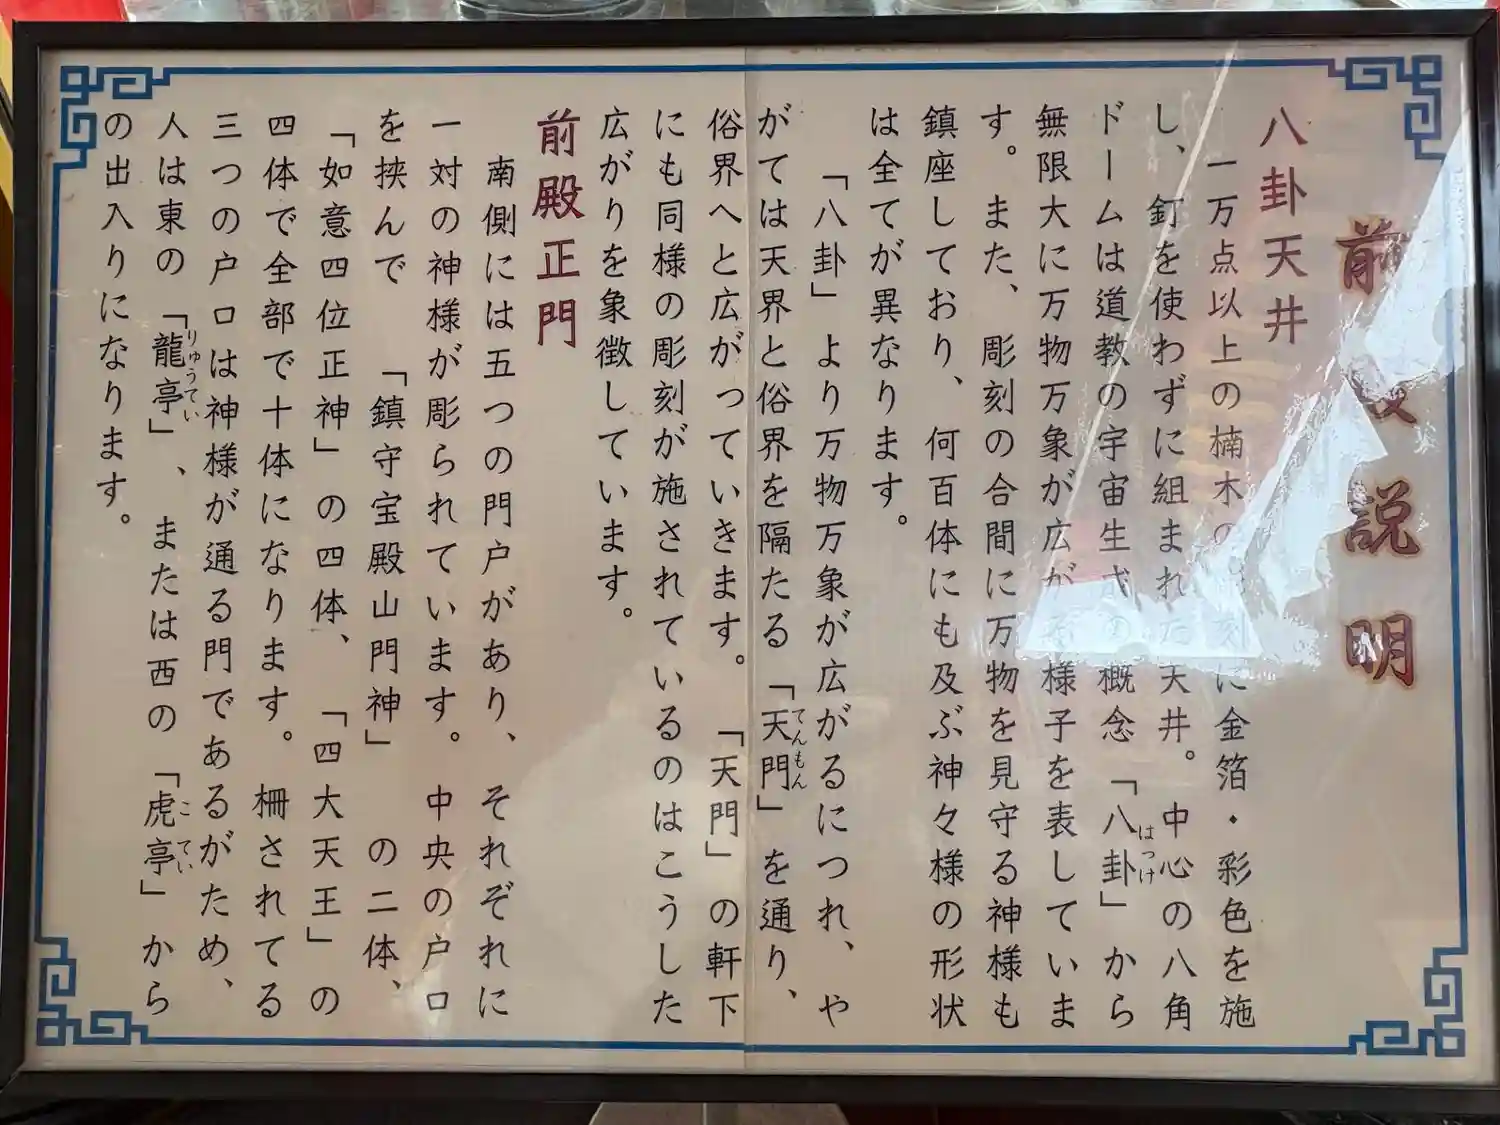 前 説明
八卦天井
一万点以上の楠木の 刻に金箔・彩色を施
し、釘を使わずに組まれた天井。中心の八角
ドームは道教の宇宙生成の概念「八卦」から
はっけ
無限大に万物万象が広がる様子を表していま
す。また、彫刻の合間に万物を見守る神様も
鎮座しており、何百体にも及ぶ神々様の形状
は全てが異なります。
「八卦」より万物万象が広がるにつれ、や
がては天界と俗界を隔たる「天門」を通り、
てんもん
俗界へと広がっていきます。「天門」の軒下
にも同様の彫刻が施されているのはこうした
広がりを象徴しています。
前殿正門
南側には五つの門戸があり、それぞれに
一対の神様が彫られています。中央の戸口
を挟んで「鎮守宝殿山門神」の二体、
「如意四位正神」の四体、「四大天王」の
四体で全部で十体になります。柵されてる
三つの戸口は神様が通る門であるがため、
人は東の「龍亭」、または西の「虎亭」から
りゅうてい
こてい
の出入りになります。